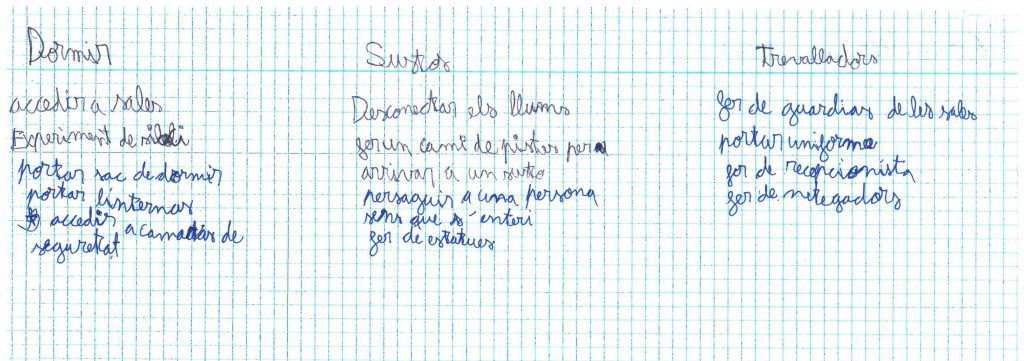 Dormir
accedir a sales
Experiment de silenci
portar sac de dormir
portar linternas
accedir a camaras de
seguretat
Sustos
Desconectar els llums
fer un cami de pistes per
arrivar a un susto
perseguir a una persona
sens que s'enteri
fer de estatues
Trevalladors
fer de guardias de les sales
portar uniforme
fer de recepcionista
fer de netegadors